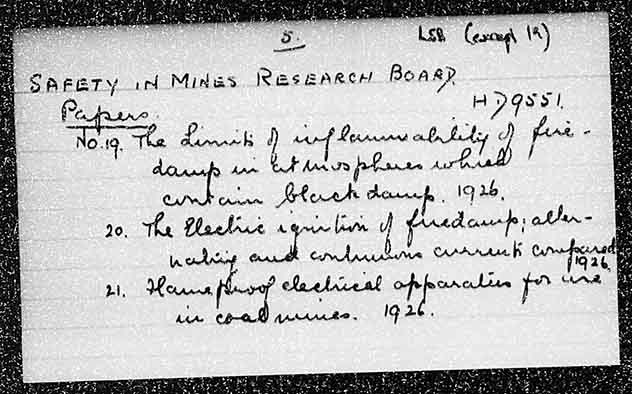 5.
LSB (except 19)
SAFETY IN MINES RESEARCH BOARD.
Papers.
HD9551.
No. 19. The Limits of inflammability of fire-
damp in atmospheres which
contain black damp. 1926.
20. The Electric ignition of firedamp; alter-
nating and continuous currents compared
1926.
21. Flameproof electrical apparatus for use
in coal mines. 1926.